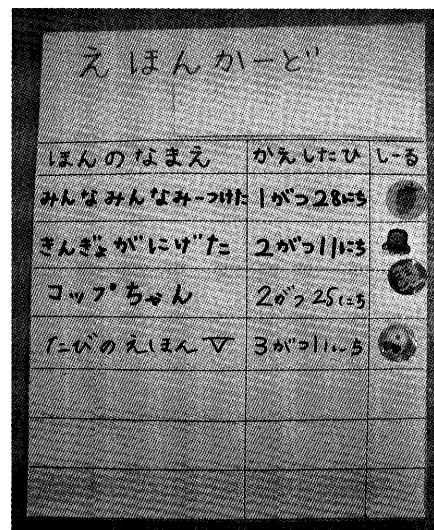 えほんかーど
ほんのなまえ かえしたひ しーる
みんなみんなみーつけた 1がつ28にち
きんぎょがにげた 2がつ11にち
コップちゃん 2がつ25にち
たびのえほんⅣ 3がつ11にち